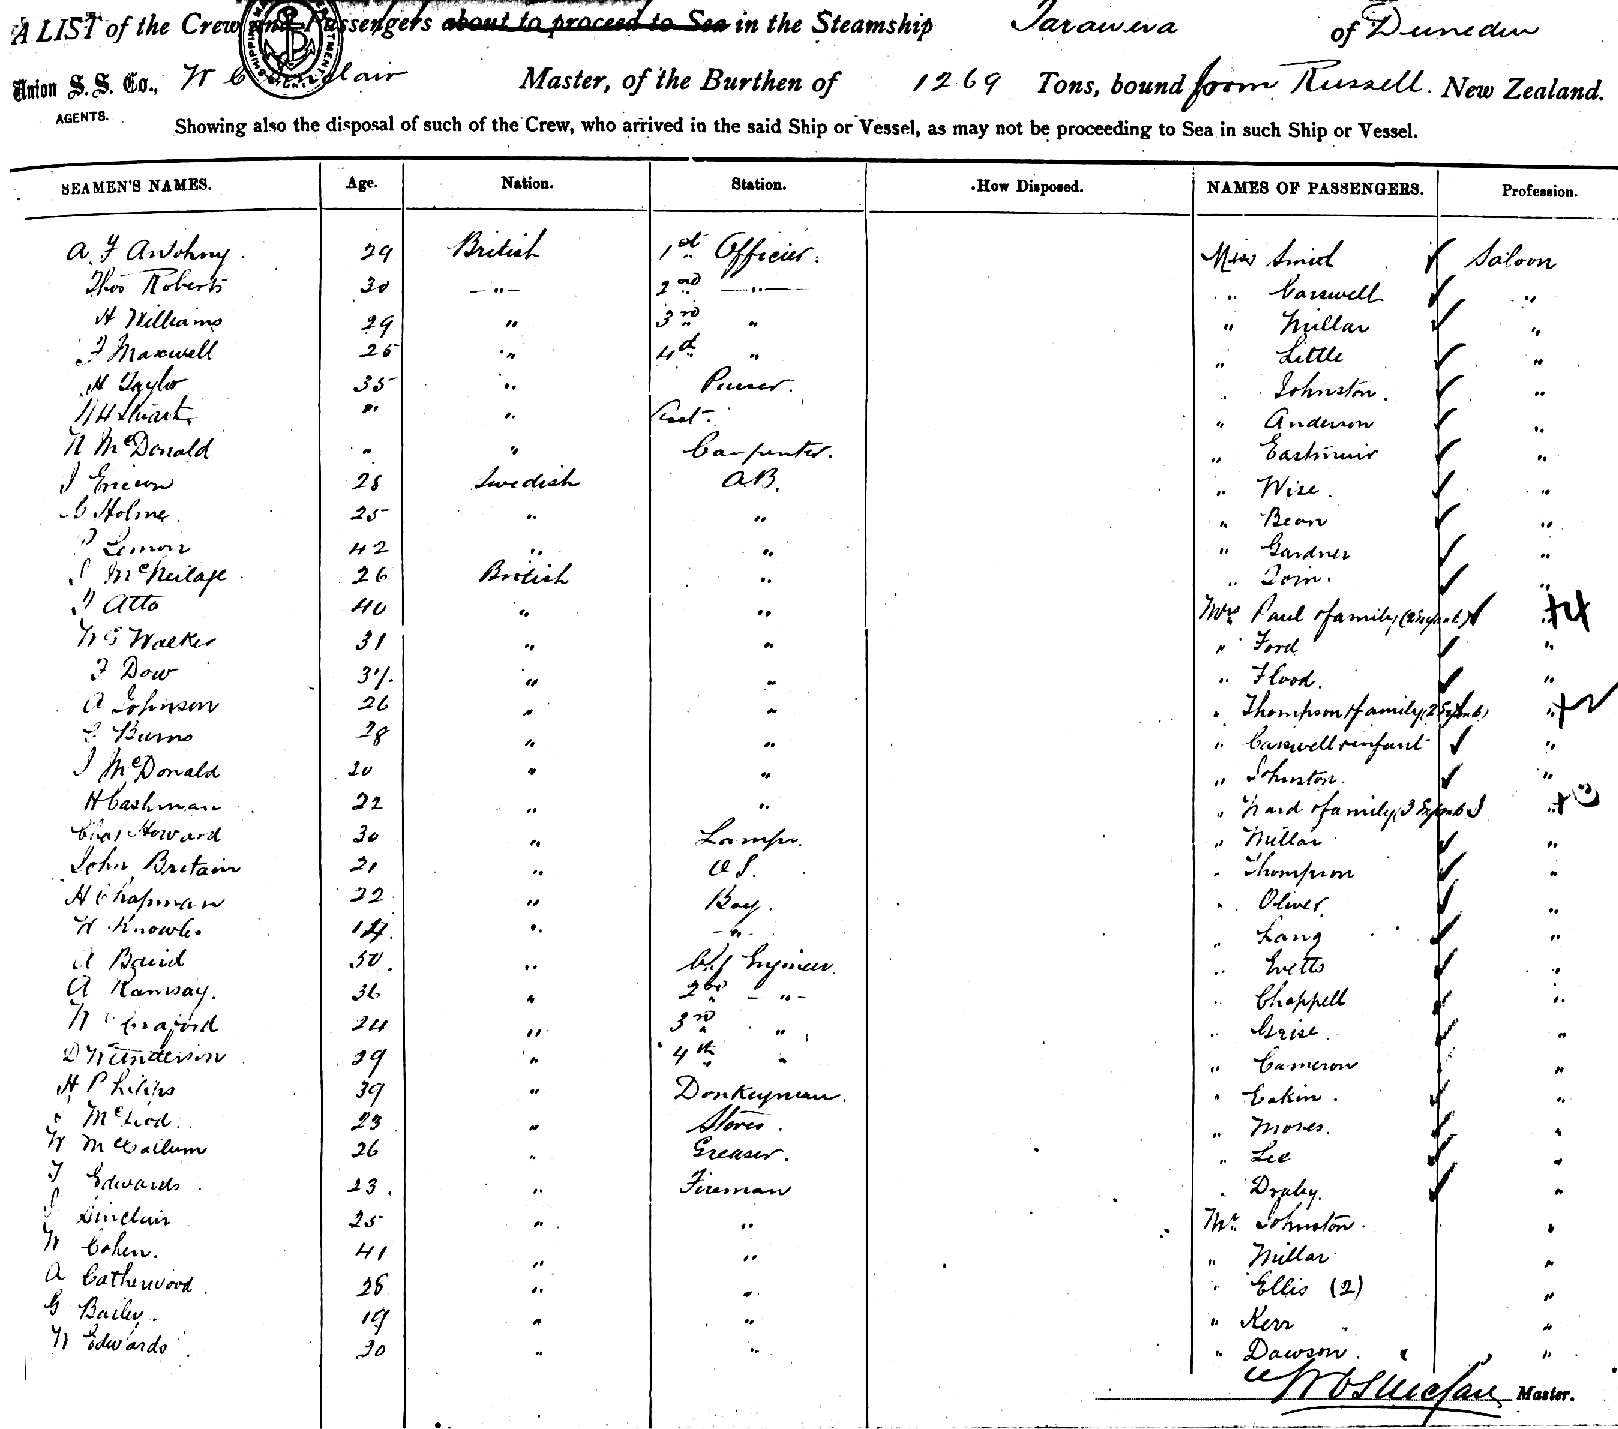 A LIST of the Crew and Passengers about to proceed to Sea in the Steamship Tarawera of Dunedin
Union S. S. Co., W C Sinclair Master, of the Burthen of 1269 Tons, bound from Russell. New Zealand.
AGENTS.
Showing also the disposal of such of the Crew, who arrived in the said Ship or Vessel, as may not be proceeding to Sea in such Ship or Vessel.
SEAMEN'S NAMES. Age. Nation. Station. How Disposed. NAMES OF PASSENGERS. Profession.
29 British 1st Officier. Miss Smith Saloon
Thos Roberts 30 " 2nd " " Carswell "
H Williams 29 " 3rd " " Millar "
F Maxwell 25 " 4th " " Little "
H Taylor 35 " Purser. Johnston. "
W H Stuart " " " Anderson "
N McDonald " " Carpenter. " Eastmuir "
J Ericson 28 Swedish A.B. " Wise. "
Holme 25 " " " Bean "
Lemon 42 " " " Gardner "
J McNeilage 26 British " "
J Atto 40 " " Mrs Paul & family
W G Walker 31 " " " Ford "
F Dow " " " Flood. "
A Johnson 26 " " " Thompson & family "
C Burns 28 " " " Carswell & infant "
J McDonald 20 " " " Johnston. "
H Cashman 22 " " " Ward & family "
Chas Howard 30 " Lamps. " Millar "
John Britain 21 " O S. " Thompson "
H Chapman 22 " Boy. " Oliver. "
W Knowles 14 " " " Lang "
A Baird 50 " Chf Engineer. " Evetts "
A Ramsay. 36 " 2nd " " Chappell "
24 " 3rd " " Grise "
D W Anderson 29 " 4th " " Cameron "
H Philips 39 " Donkeyman. " Eakin. "
McLeod. 23 " Stores. " Moses. "
W McCallum 26 " Greaser. " Lee "
T Edwards 23. " Fireman " Draby. "
J Sinclair 25 " " Mr Johnston. "
W Cohen. 41 " " " Millar "
A Catherwood 28 " " " Ellis (2) "
G Bailey. 19 " " " Kerr "
W Edwards 30 " " " Dawson. "
W C Sinclair Master.